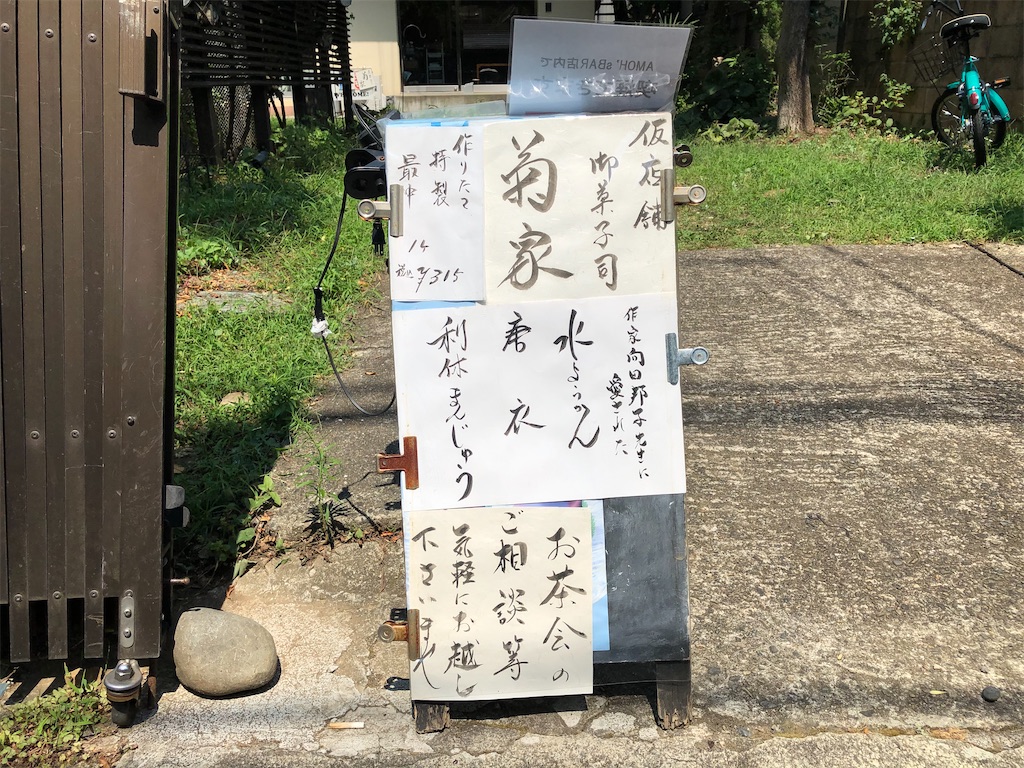 AMOH'sBAR店内で
仮店舗
御菓子司
菊家
作りたて
特製
最中
1ケ
税込¥315
作家向田邦子先生に
愛された
水ようかん
唐衣
利休まんじゅう
お茶会の
ご相談等
気軽にお越し
下さいませ